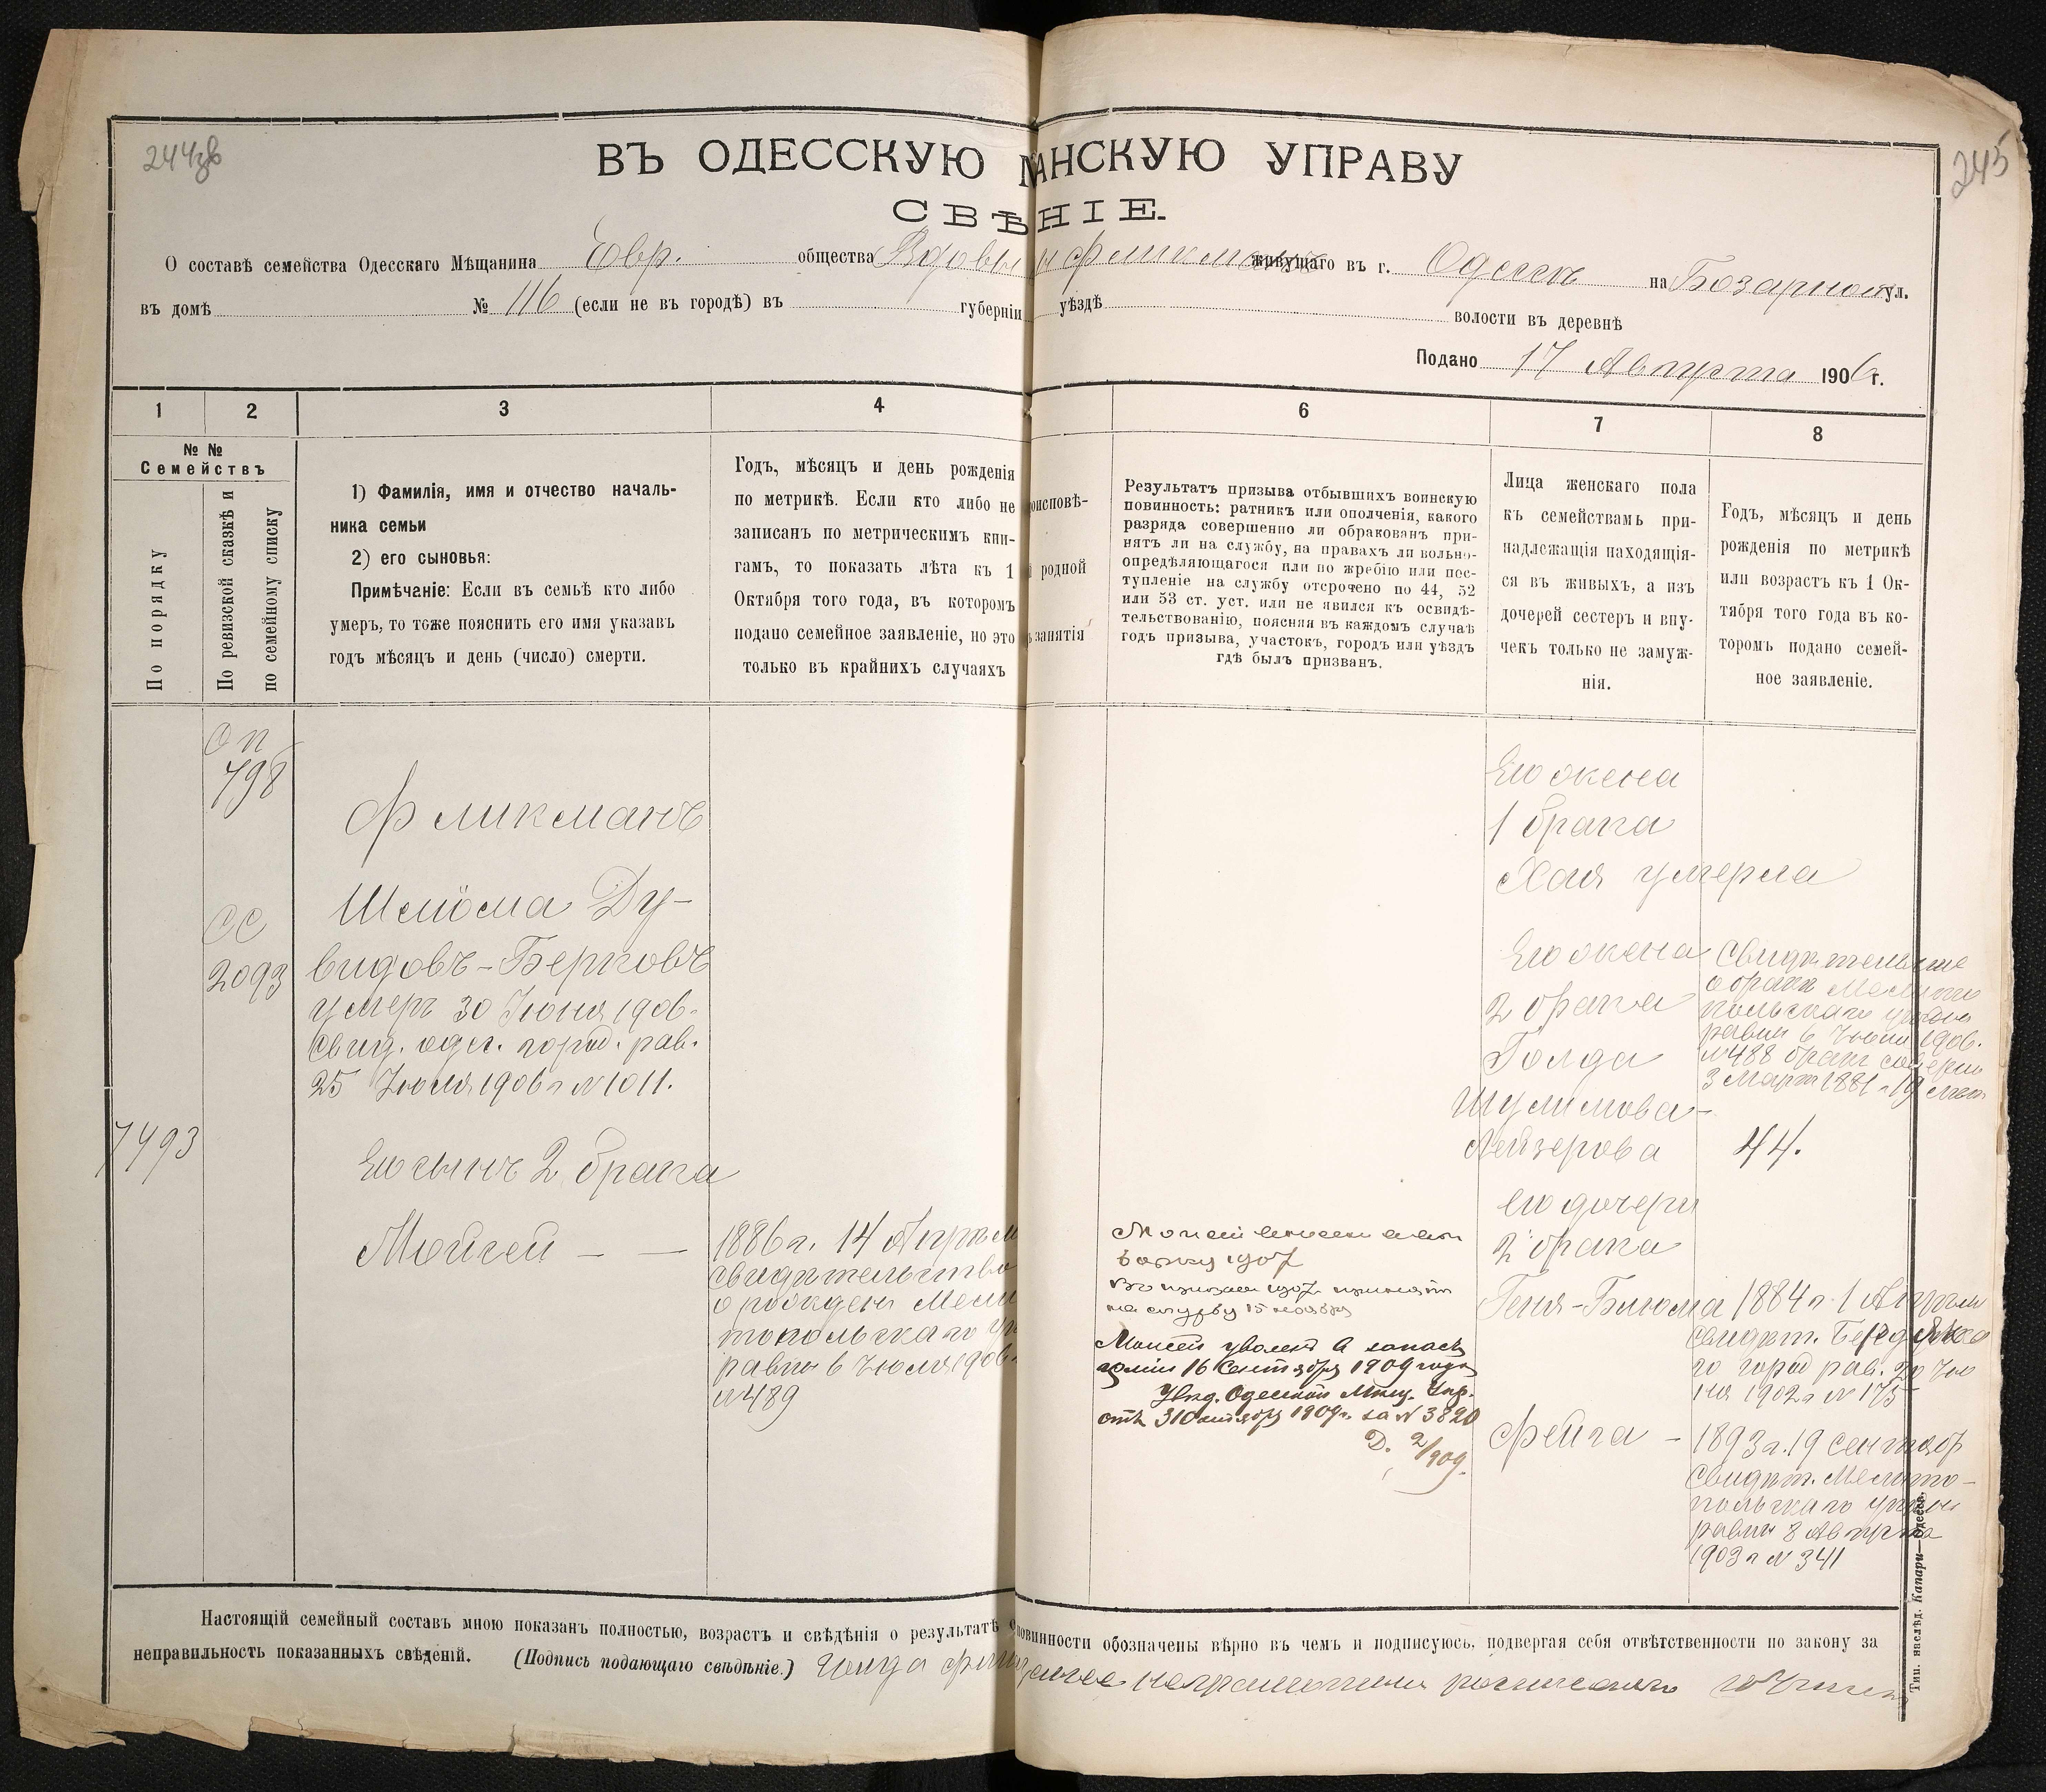 244зв
245
ВЪ ОДЕССКУЮ АНСКУЮ УПРАВУ
СВѢНІЕ.
О составѣ семейства Одесскаго Мѣщанина Евр. общества Вдовы Фликманъ живущаго въ г. Одессѣ на Базарной ул.
въ домѣ № 116 (если не въ городѣ) въ губерніи уѣздѣ волости въ деревнѣ
Подано 17 Августа 1906 г.
1 2 3 4 6 7 8
№ №
Семействъ
По порядку
По ревизской сказкѣ и
по семейному списку
1) Фамилія, имя и отчество началь-
ника семьи
2) его сыновья:
Примѣчаніе: Если въ семьѣ кто либо
умеръ, то тоже пояснить его имя указавъ
годъ мѣсяцъ и день (число) смерти.
Годъ, мѣсяцъ и день рожденія
по метрикѣ. Если кто либо не
записанъ по метрическимъ кни-
гамъ, то показать лѣта къ 1
Октября того года, въ которомъ
подано семейное заявленіе, но это
только въ крайнихъ случаяхъ
оисповѣ-
родной
занятія
Результатъ призыва отбывшихъ воинскую
повинность: ратникъ или ополченія, какого
разряда совершенно ли обракованъ при-
нятъ ли на службу, на правахъ ли вольно-
опредѣляющагося или по жребію или пос-
тупленіе на службу отсрочено по 44, 52
или 53 ст. уст. или не явился къ освидѣ-
тельствованію, поясняя въ каждомъ случаѣ
годъ призыва, участокъ, городъ или уѣздъ
гдѣ былъ призванъ.
Лица женскаго пола
къ семействамъ при-
надлежащія находящія-
ся въ живыхъ, а изъ
дочерей сестеръ и вну-
чекъ только не замуж-
нія.
Годъ, мѣсяцъ и день
рожденія по метрикѣ
или возрастъ къ 1 Ок-
тября того года въ ко-
торомъ подано семей-
ное заявленіе.
798
СС
2093
7493
Фликманъ
Шлиома Ду-
видовъ-Берковъ
умеръ 30 Іюня 1906.
Свид. одес. город. рав.
25 Іюля 1906 г N 1011.
Его сынъ 2 брака
Мойсей
1886 г. 14 Апрѣл
свидѣтельство
о рожден Мели
топольскаго
равин 6 Іюля 1906.
N 489
Моисей
1907
на службу 15 ноября
Моисей уволенъ в запасъ
арміи 16 Сентября 1909 года
Увѣд. Одесской Мѣщ. Упр.
отъ 31 Октября 1909 г. за N 3820
Д. 2/909.
Его жена
1 брака
Хая умерла
Его жена
2 брака
Голда
Шулимова-
Лейзерова
Свидѣтельство
о бракѣ Мелито
польскаго
равин 6 1906.
N 488 бракъ соверш
3 Марта 1881 г 19 лѣт
44.
его дочери
2 брака
Геня-Блюма 1884 г. 1 Апрѣля
свидѣт. Бердянска
го город рав. 20 Iю
ня 1902 г N 175
Фейга - 1893 г. 19 Сентябр
Свидѣт. Мелито-
польскаго
равин 8 Августа
1903 г N 341
Настоящій семейный составъ мною показанъ полностью, возрастъ и свѣдѣнія о результатѣ повинности обозначены вѣрно въ чемъ и подписуюсь, подвергая себя отвѣтственности по закону за
неправильность показанныхъ свѣденій. (Подпись подающаго свѣдѣніе.) Голда
Тип. наслѣд. Капари—Одесса.